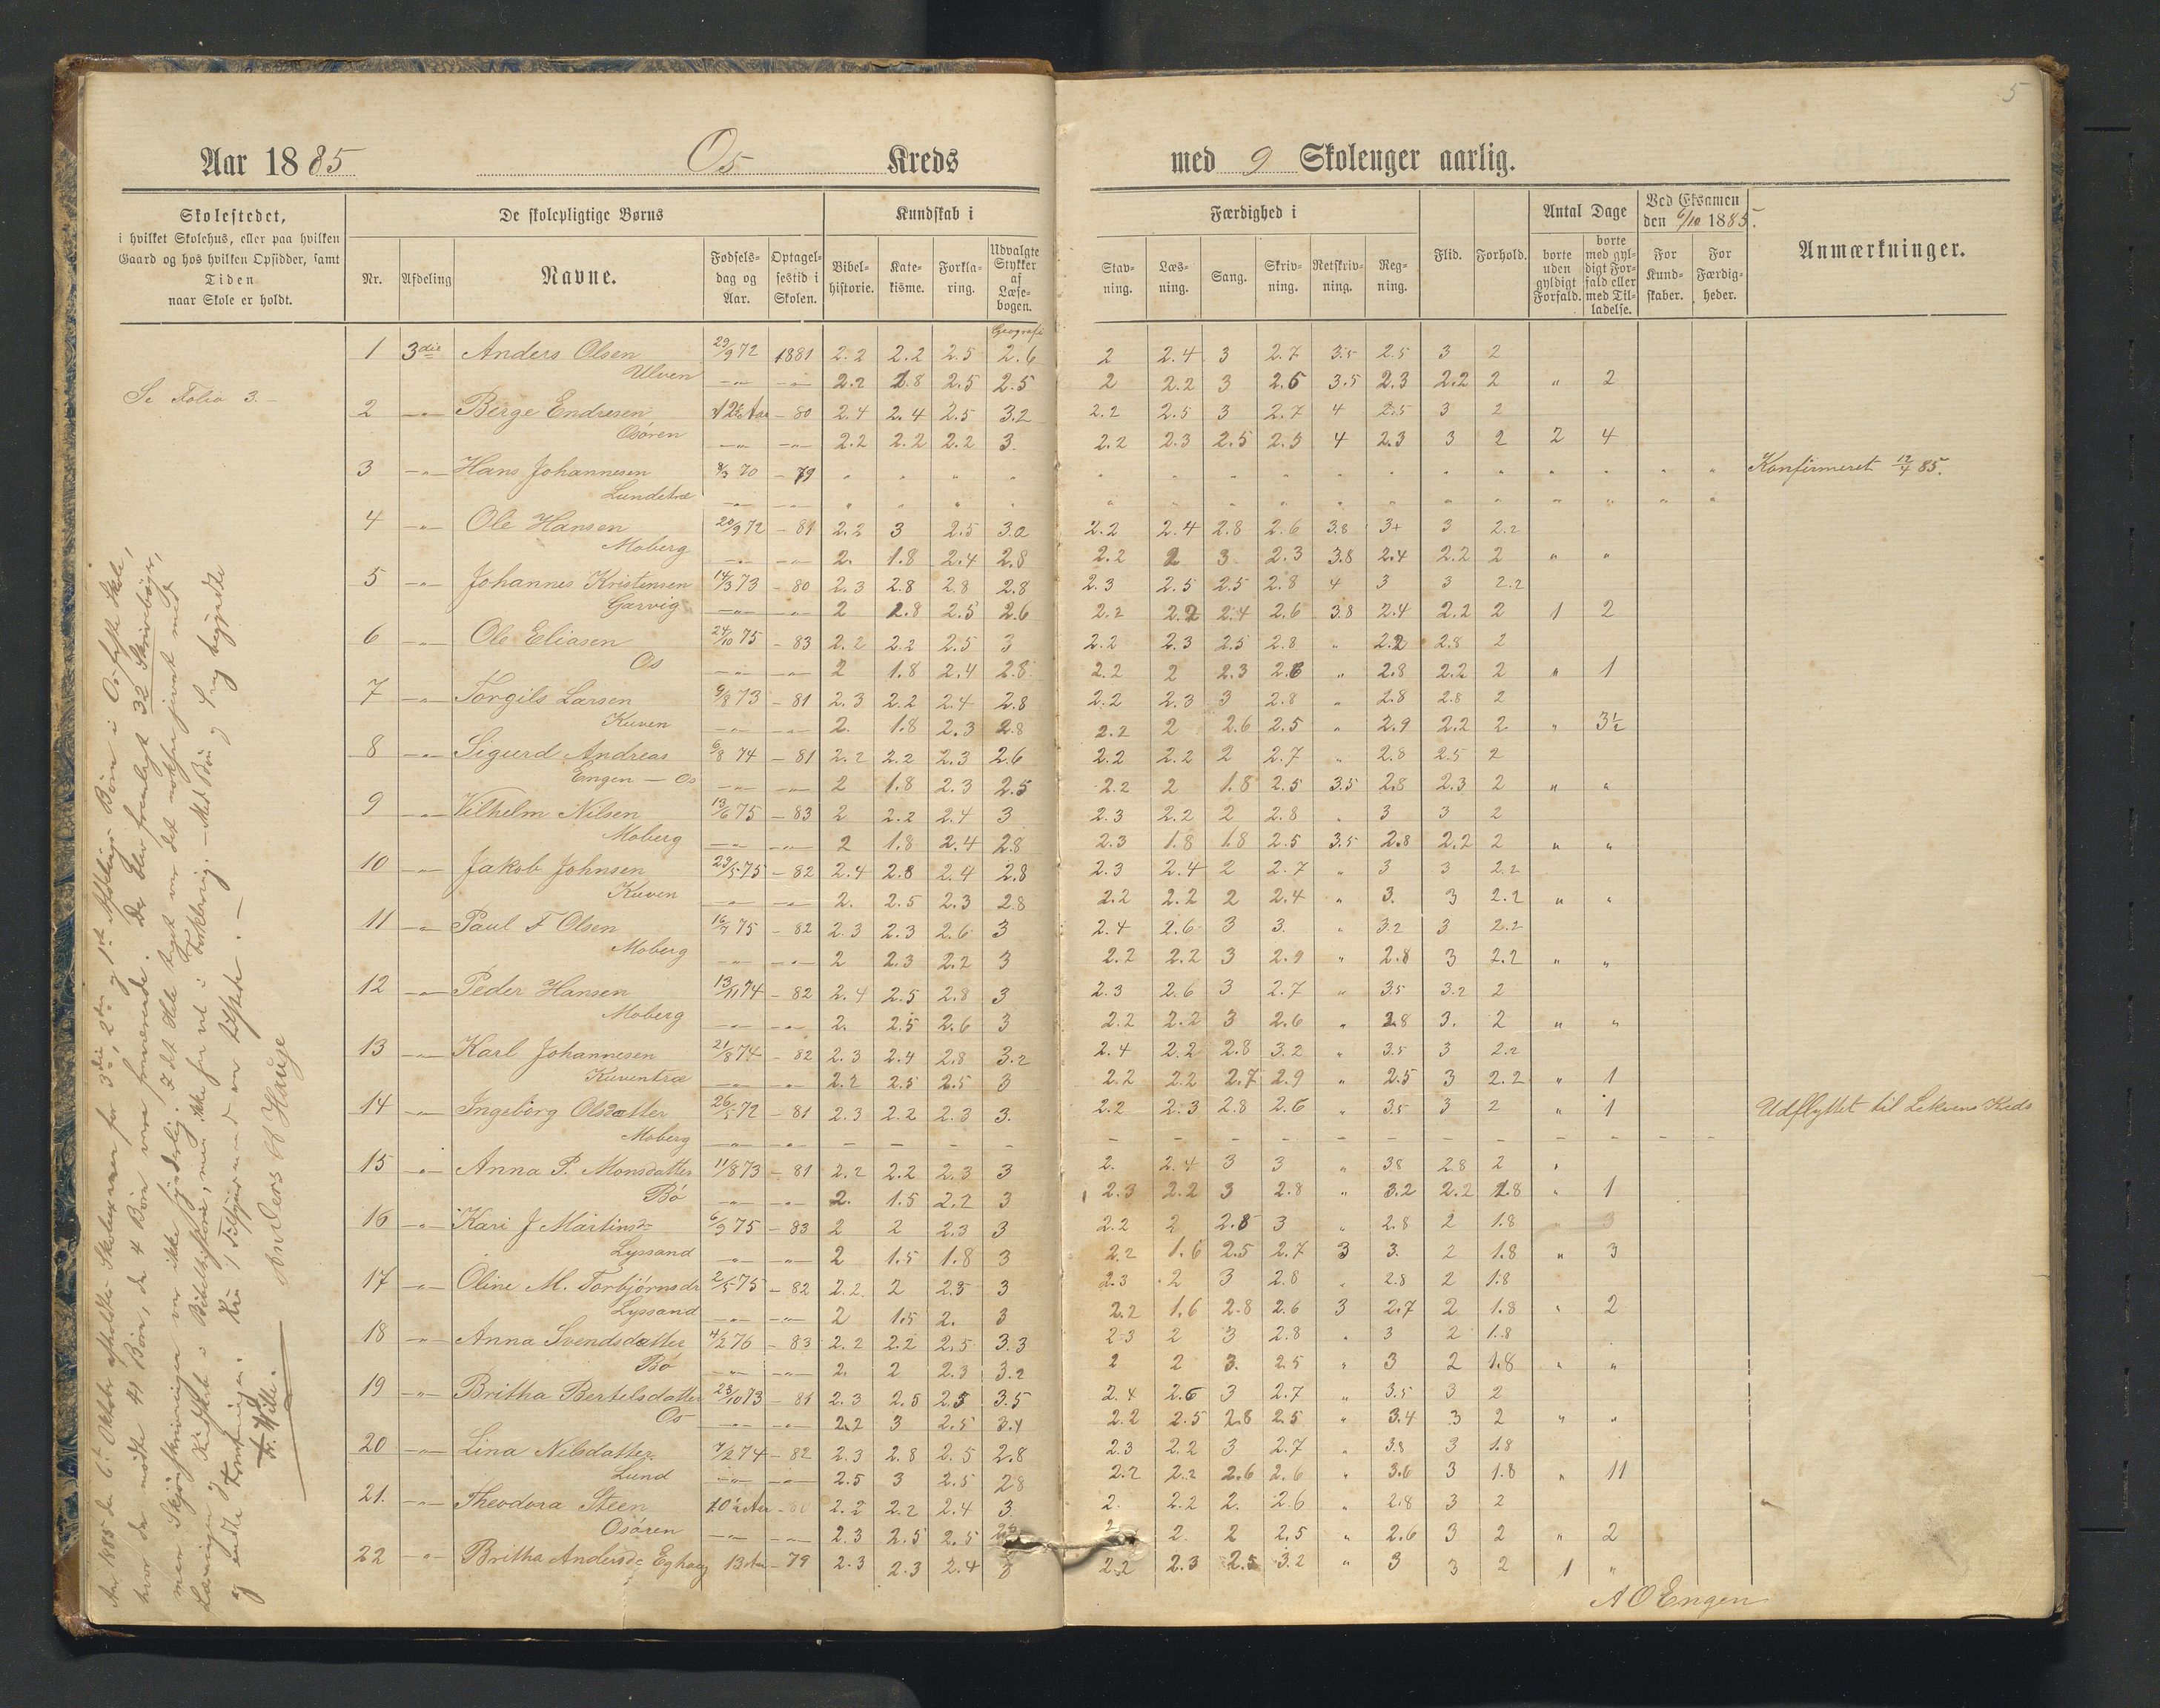 5
Aar 1885 Os Kreds med 9 Skoleuger aarlig.
Skolestedet,
i hvilket Skolehus, eller paa hvilken
Gaard og hos hvilken Opsidder, samt
Tiden
naar Skole er holdt.
De skolepligtige Børns
Nr. Afdeling Navne. Fødselsdag og Aar. Optagelsestid i Skolen.
Kundskab i
Bibelhistorie. Katekisme. Forklaring. Udvalgte Stykker af Læsebogen.
Færdighed i
Stavning. Læsning. Sang. Skrivning. Retskrivning. Regning.
Flid. Forhold.
Antal Dage
borte uden gyldigt Forfald. borte med gyldigt Forfald eller med Tilladelse.
Ved Eksamen
den 6/10 1885.
For Kundskaber. For Færdigheder.
Anmærkninger.
Geografi
1 3die Anders Olsen 29/9 72 1881 2.2 2.2 2.5 2.6 2 2.4 3 2.7 3.5 2.5 3 2
Ulven -"- -"- 2.2 1.8 2.5 2.5 2 2.2 3 2.6 3.5 2.3 2.2 2 " 2
Se Folio 3.-
2 -"- Berge Endresen 12 Aar - 80 2.4 2.4 2.5 3.2 2.2 2.5 3 2.7 4 2.5 3 2
Osören -"- -"- 2.2 2.2 2.2 3. 2.2 2.3 2.5 2.5 4 2.3 3 2 2 4
3 -"- Hans Johannesen 8/3 70 - 79 " " " " " " " " " " " " " " " " Konfirmeret 12/4 85.
Lundetræ -"- -"- " " " " " " " " " " " " " " " "
4 -"- Ole Hansen 20/9 72 - 81 2.2 3 2.5 3.2 2.2 2.4 2.8 2.6 3.8 3+ 3 2.2
Moberg -"- -"- 2. 1.8 2.4 2.8 2.2 2 3 2.3 3.8 2.4 2.2 2 " "
5 -"- Johannes Kristensen 14/3 73 - 80 2.3 2.8 2.8 2.8 2.3 2.5 2.5 2.8 4 3 3 2.2
Garvig -"- -"- 2 1.8 2.5 2.6 2.2 2.2 2.4 2.6 3.8 2.4 2.2 2 1 2
6 -"- Ole Eliasen 24/10 75 - 83 2.2 2.2 2.5 3 2.2 2.3 2.5 2.8 " 2.2 2.8 2
Os -"- -"- 2 1.8 2.4 2.8 2.2 2 2.3 2.6 " 2.8 2.2 2 " 1
7 -"- Torgils Larsen 9/8 73 - 81 2.3 2.2 2.4 2.8 2.2 2.3 3 2.8 " 2.8 2.8 2
Kuven -"- -"- 2. 1.8 2.3 2.8 2.2 2 2.6 2.5 " 2.9 2.2 2 " 3½
8 -"- Sigurd Andreas 6/8 74 - 81 2.2 2.2 2.3 2.6 2.2 2.2 2 2.7 " 2.8 2.5 2
Engen - Os -"- -"- 2 1.8 2.3 2.5 2.2 2 1.8 2.5 3.5 2.8 2.3 2 " "
9 -"- Vilhelm Nilsen 13/6 75 - 83 2 2.2 2.4 3 2.3 2.2 2 2.8 " 3 3 2
Moberg -"- -"- 2 1.8 2.4 2.8 2.3 1.8 1.8 2.5 3.5 2.8 2.2 2 " "
10 -"- Jakob Johnsen 29/5 75 - 82 2.4 2.8 2.4 2.8 2.3 2.4 2 2.7 " 3 3 2.2
Kuven -"- -"- 2. 2.5 2.3 2.8 2.2 2.2 2 2.4 " 3. 3 2.2 " "
11 -"- Paul F Olsen 16/7 75 - 82 2.3 2.3 2.6 3 2.4 2.6 3 3. " 3.2 3 2.2
Moberg -"- -"- 2 2.3 2.2 3 2.2 2.2 3 2.9 " 2.8 3 2.2 " "
12 -"- Peder Hansen 13/11 74 - 82 2.4 2.5 2.8 3 2.3 2.6 3 2.7 " 3.5 3.2 2
Moberg -"- -"- 2. 2.5 2.6 3 2.2 2.2 3 2.6 " 3.8 3. 2 " "
13 -"- Karl Johannesen 21/8 74 - 82 2.3 2.4 2.8 3.2 2.4 2.2 2.8 3.2 " 3.5 3 2.2
Kuventræ -"- -"- 2.2 2.5 2.5 3 2.2 2.2 2.7 2.9 " 2.5 3 2.2 " 1
14 -"- Ingeborg Olsdatter 26/5 72 - 81 2.3 2.2 2.3 3. 2.2 2.3 2.8 2.6 " 3.5 3 2 " 1 Udflyttet til Lekvens Kreds
Moberg -"- -"- - - - - - - - - - - - - - - - -
15 -"- Anna P. Monsdatter 11/8 73 - 81 2.2 2.2 2.3 3 2. 2.4 3 3 " 3.8 2.8 2 "
Bö -"- -"- 2. 1.5 2.2 3 2.3 2.2 3 2.8 " 3.2 2.2 1.8 " 1
16 -"- Kari J Martinsd. 6/9 75 - 83 2 2 2.3 3 2.2 2 2.8 3 " 2.8 2 1.8 " 3
Lyssand -"- -"- 2 1.5 1.8 3 2.2 1.6 2.5 2.7 3 3. 2 1.8 " 3
17 -"- Oline M. Torbjörnsdr 2/5 75 - 82 2.2. 2 2.5 3 2.3 2 3 2.8 " 2.8 2 1.8
Lyssand -"- -"- 2 1.5 2. 3 2.2 1.6 2.8 2.6 3 2.7 2 1.8 " 2
18 -"- Anna Svendsdatter 4/2 76 - 83 2.2 2.2 2.5 3.3 2.3 2 3 2.8 " 3 2 1.8
Bö -"- -"- 2. 2 2.3 3.2 2 2 3. 2.5 " 3 2 1.8 " "
19 -"- Britha Bertelsdatter 23/10 73 - 81 2.3 2.8 2.5 3.5 2.4 2.6 3 2.7 " 3.5 3 2
Os -"- -"- 2.2 3 2.5 3.4 2.2 2.5 2.8 2.5 " 3.4 3 2 " "
20 -"- Lina Nilsdatter 7/2 74 - 82 2.3 2.8 2.5 2.8 2.3 2.2 3 2.7 " 3.8 3 1.8
Lund -"- -"- 2.5 3 2.5 2.8 2.2 2.2 2.6 2.6 " 3.6 3 1.8 " 11
21. -"- Theodora Steen 10½ Aar - 80 2.2 2.2 2.4 3. 2. 2.2 2. 2.6 " 2.8 3 2
Osören -"- -"- 2.3 2.5 2.5 2 2. 2 2.5 " 2.6 3 2 " 2
22 -"- Britha Andersdr Eghaug 13 Aar - 79 2.3 2.3 2.4 3 2.2 2.3 2.5 3.2 " 3 3 2 1 "
A O Engen
Aar 1885 den 6te Oktober afholdtes Skoleexamen for 3die, 2den og 1ste Afdelings Börn i Os faste Skole,
hvor der mödte 41 Börn, de 4 Börn vare fraværende. Der blev fremlagt 32 Skrivebøger,
men Skjönskrivningen var ikke synderlig. I det Hele taget var det nokså jevnt med
Læsningen og Kundskab i Bibelhistorie, men ikke fuldt vel i Forklaring. - Med Bön og Sang begyndte
og endte Forretningen.
Anders H Hauge
F. Wille.